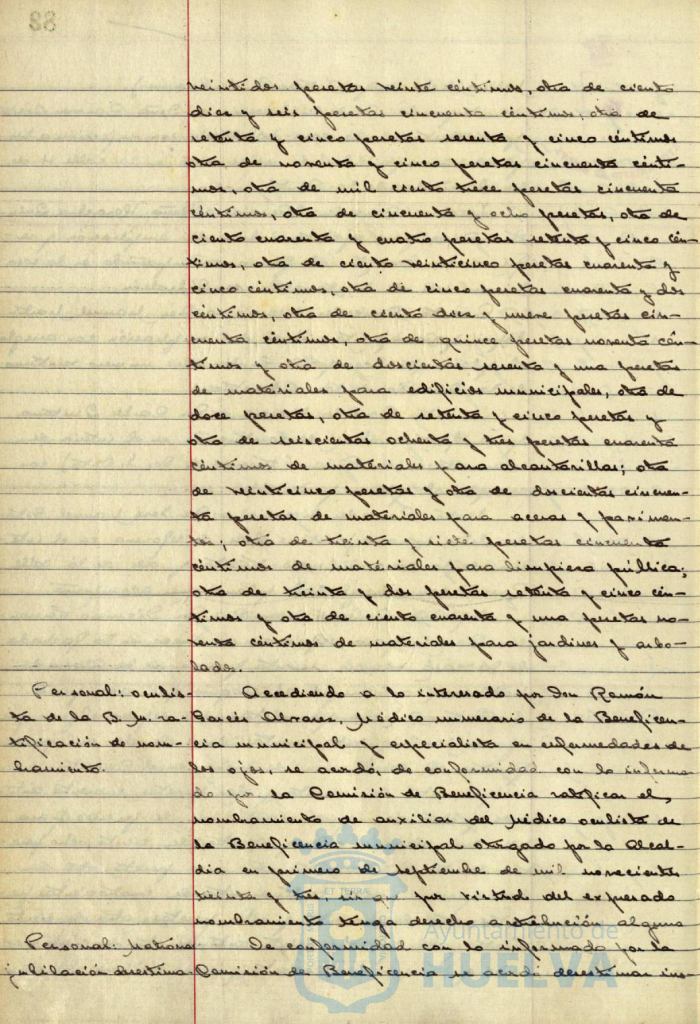 88
veintidos pesetas veinte céntimos, otra de ciento
diez y seis pesetas cincuenta céntimos, otra de
setenta y cinco pesetas sesenta y cinco céntimos
otra de noventa y cinco pesetas cincuenta cénti-
mos, otra de mil ciento trece pesetas cincuenta
céntimos, otra de cincuenta y ocho pesetas, otra de
ciento cuarenta y cuatro pesetas setenta y cinco cén-
timos, otra de ciento veinticinco pesetas cuarenta y
cinco céntimos, otra de cinco pesetas cuarenta y dos
céntimos, otra de ciento diez y nueve pesetas cin-
cuenta céntimos, otra de quince pesetas noventa cén-
timos y otra de doscientas sesenta y una pesetas
de materiales para edificios municipales, otra de
doce pesetas, otra de setenta y cinco pesetas y
otra de seiscientas ochenta y tres pesetas cuarenta
céntimos de materiales para alcantarillas; otra
de veinticinco pesetas y otra de doscientas cincuen-
ta pesetas de materiales para aceras y pavimen-
tos; otra de treinta y siete pesetas cincuenta
céntimos de materiales para limpieza pública;
otra de treinta y dos pesetas setenta y cinco cén-
timos y otra de ciento cuarenta y una pesetas no-
venta céntimos de materiales para jardines y arbo-
lados.
Personal: oculis-
ta de la B. M. ra-
tificación de nom-
bramiento.
Accediendo a lo interesado por Don Ramón
Garcés Alvarez, Médico numerario de la Beneficen-
cia municipal y especialista en enfermedades de
los ojos, se acordó, de conformidad con lo informa-
do por la Comisión de Beneficencia ratificar el
nombramiento de auxiliar del Médico oculista de
la Beneficencia municipal otorgado por la Alcal-
dia en primero de septiembre de mil novecientos
treinta y tres, sin que por virtud del expresado
nombramiento tenga derecho a retribución alguna
Personal: Matrona
jubilación desestima-
De conformidad con lo informado por la
Comisión de Beneficencia se acordó desestimar ins-
ET TERRÆ
Ayuntamiento de
HUELVA